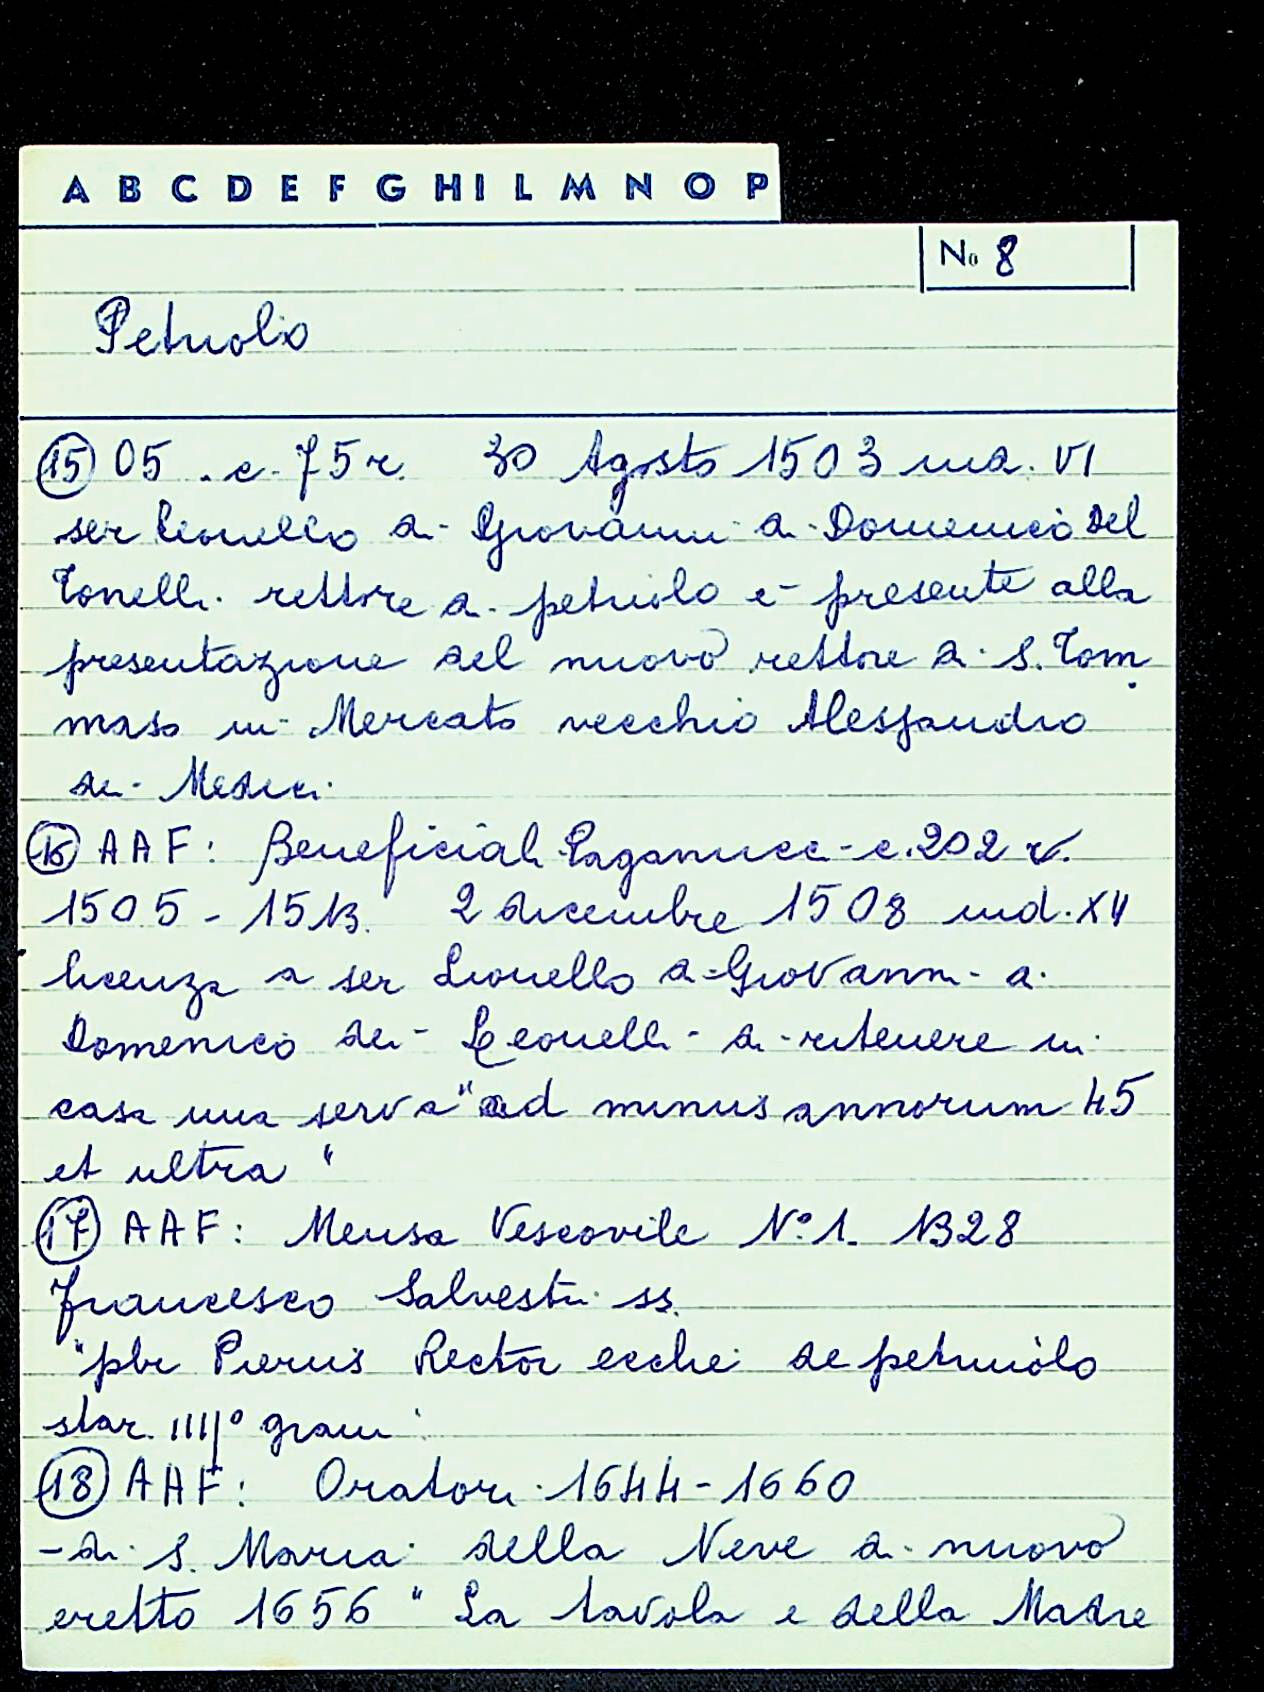 A B C D E F G H I L M N O P
No 8
Petriolo
15 05. c. 75 r. 30 Agosto 1503 ind. VI
ser Leonello di Giovanni di Domenico del
Tonelli rettore di petriolo e presente alla
presentazione del nuovo rettore di S. Tom
maso in Mercato vecchio Alessandro
de Medici.
16 AAF: Beneficiali Paganucci c. 202 v.
1505 - 1513. 2 dicembre 1508 ind. XII
licenza a ser Lionello di Giovanni di
Domenico de Leonelli di ritenere in
casa una serva "ad minus annorum 45
et ultra"
17 AAF: Mensa Vescovile N°. 1. 1328
Francesco Salvestri ss.
"pbr Pierus Rector ecche de petriuolo
star. IIII° grani
18 AAF: Oratori 1644-1660
- di S. Maria della Neve di nuovo
eretto 1656 "La tavola e della Madre